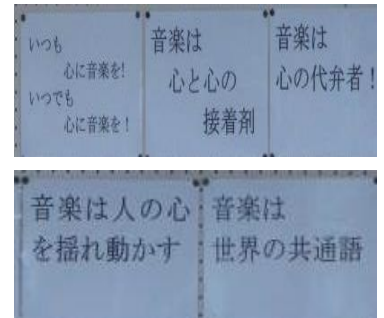 いつも
心に音楽を!
いつでも
心に音楽を!
音楽は
心と心の
接着剤
音楽は
心の代弁者!
音楽は人の心
を揺れ動かす
音楽は
世界の共通語